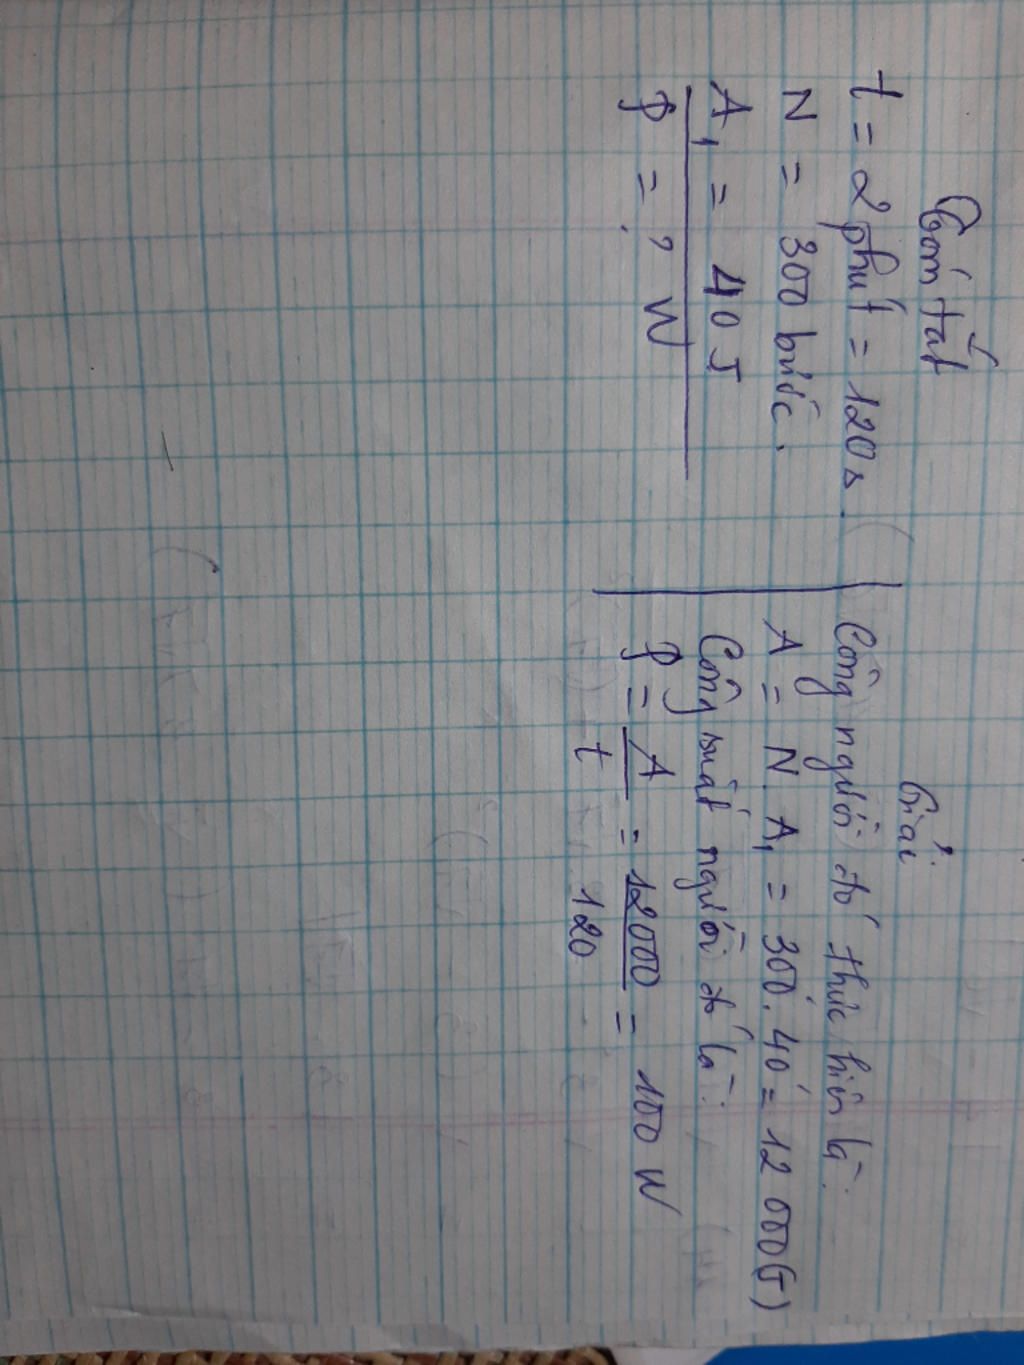 Tóm tắt
t = 2 phút = 120 s.
N = 300 bước.
A₁ = 40 J
P = ? W
Giải
Công người đó thực hiện là:
A = N. A₁ = 300. 40 = 12 000 (J)
Công suất người đó là:
P = A/t = 12000/120 = 100 W